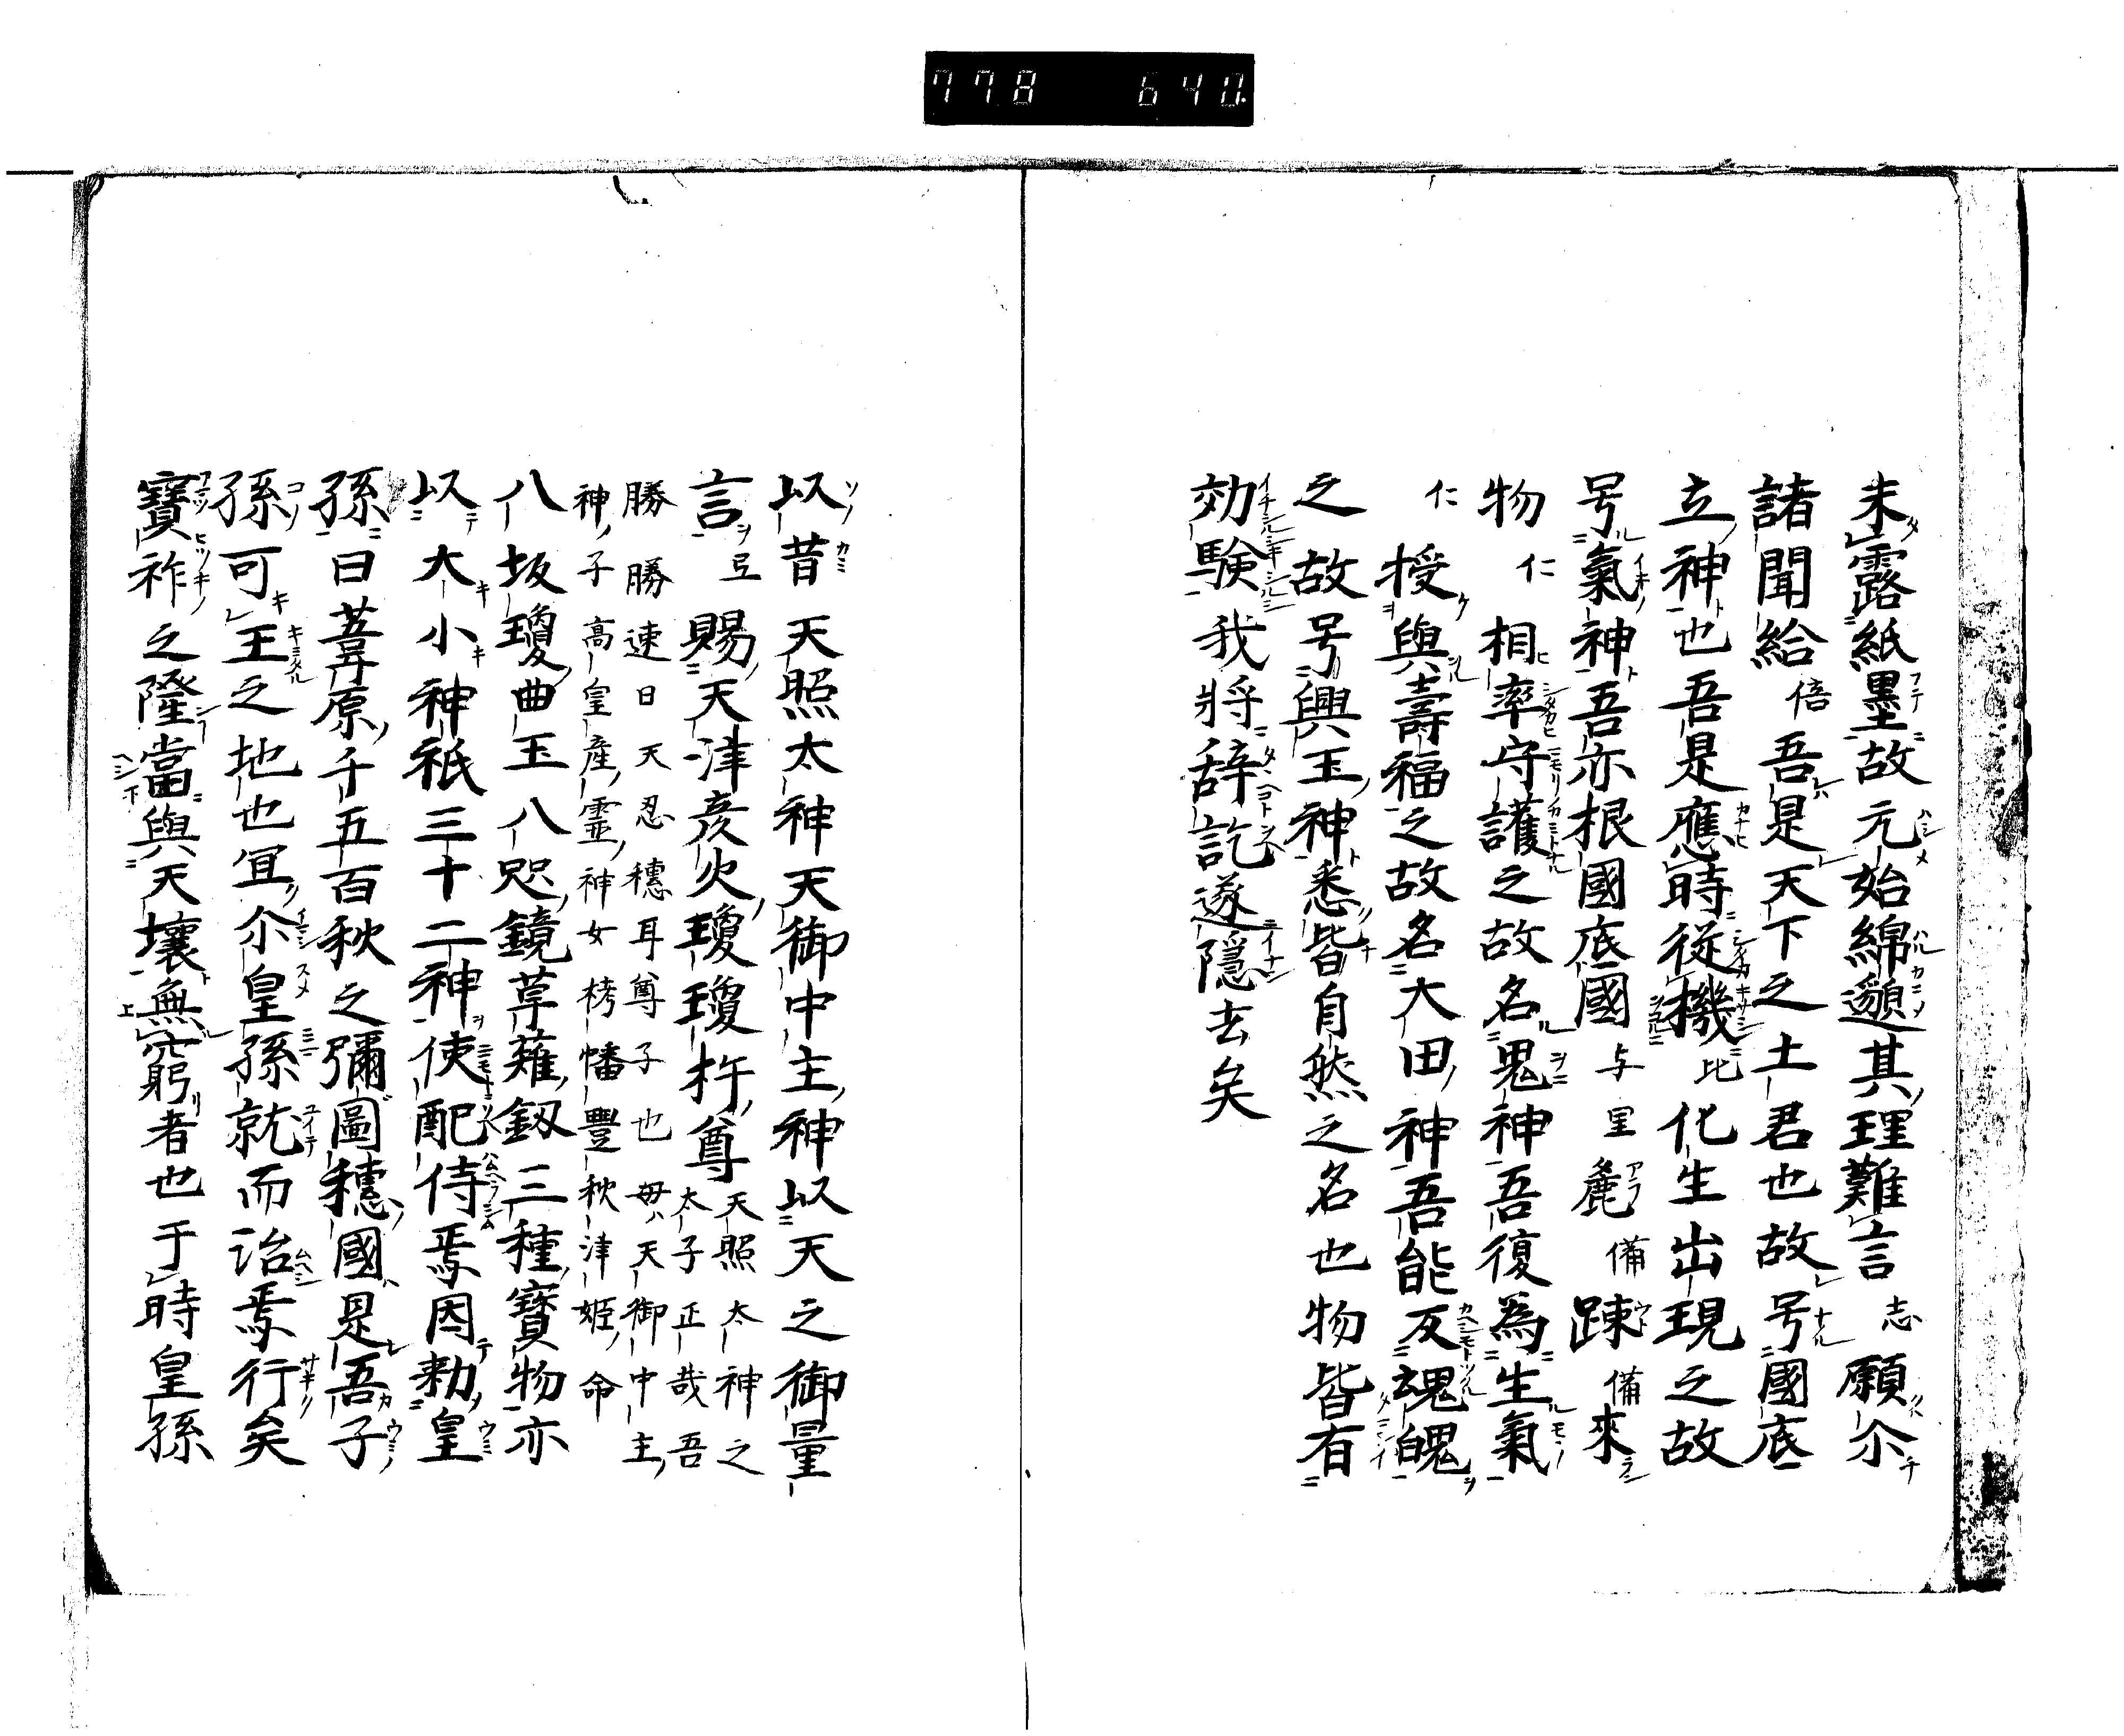 778 640
未露紙墨故元始綿邈其理難言志願尒
諸聞給倍吾是天下之土君也故号國底
立神也吾是應時從機比化生出現之故
号氣神吾亦根國底國与里麁備踈備來
物仁相率守護之故名鬼神吾復為生氣
仁授與壽福之故名大田神吾能反魂魄
之故号興玉神悉皆自然之名也物皆有
効驗我將辞訖遂隱去矣
以昔天照太神天御中主神以天之御量
言弖賜天津彦火瓊瓊杵尊天照太神之
太子正哉吾
勝勝速日天忍穗耳尊子也母天御中主
神子高皇産靈神女栲幡豐秋津姬命
八坂瓊曲玉八咫鏡草薙釼三種寶物亦
以大小神祇三十二神使配侍焉因勅皇
孫曰葦原千五百秋之彌圖穗國是吾子
孫可王之地也冝尒皇孫就而治焉行矣
寶祚之隆當與天壤無窮者也于時皇孫